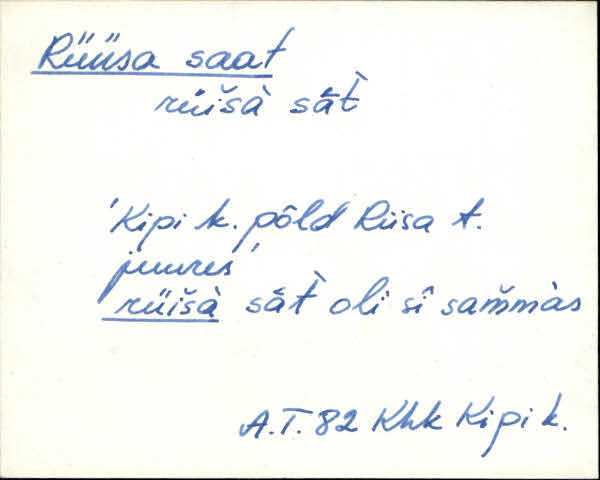 Rüüsa saat
rüišà sāt̀
'Kipi k. põld Riisa t.
juures'
rüišà sāt̀ oli sī sam̆màs
A.T. 82 Khk Kipi k.